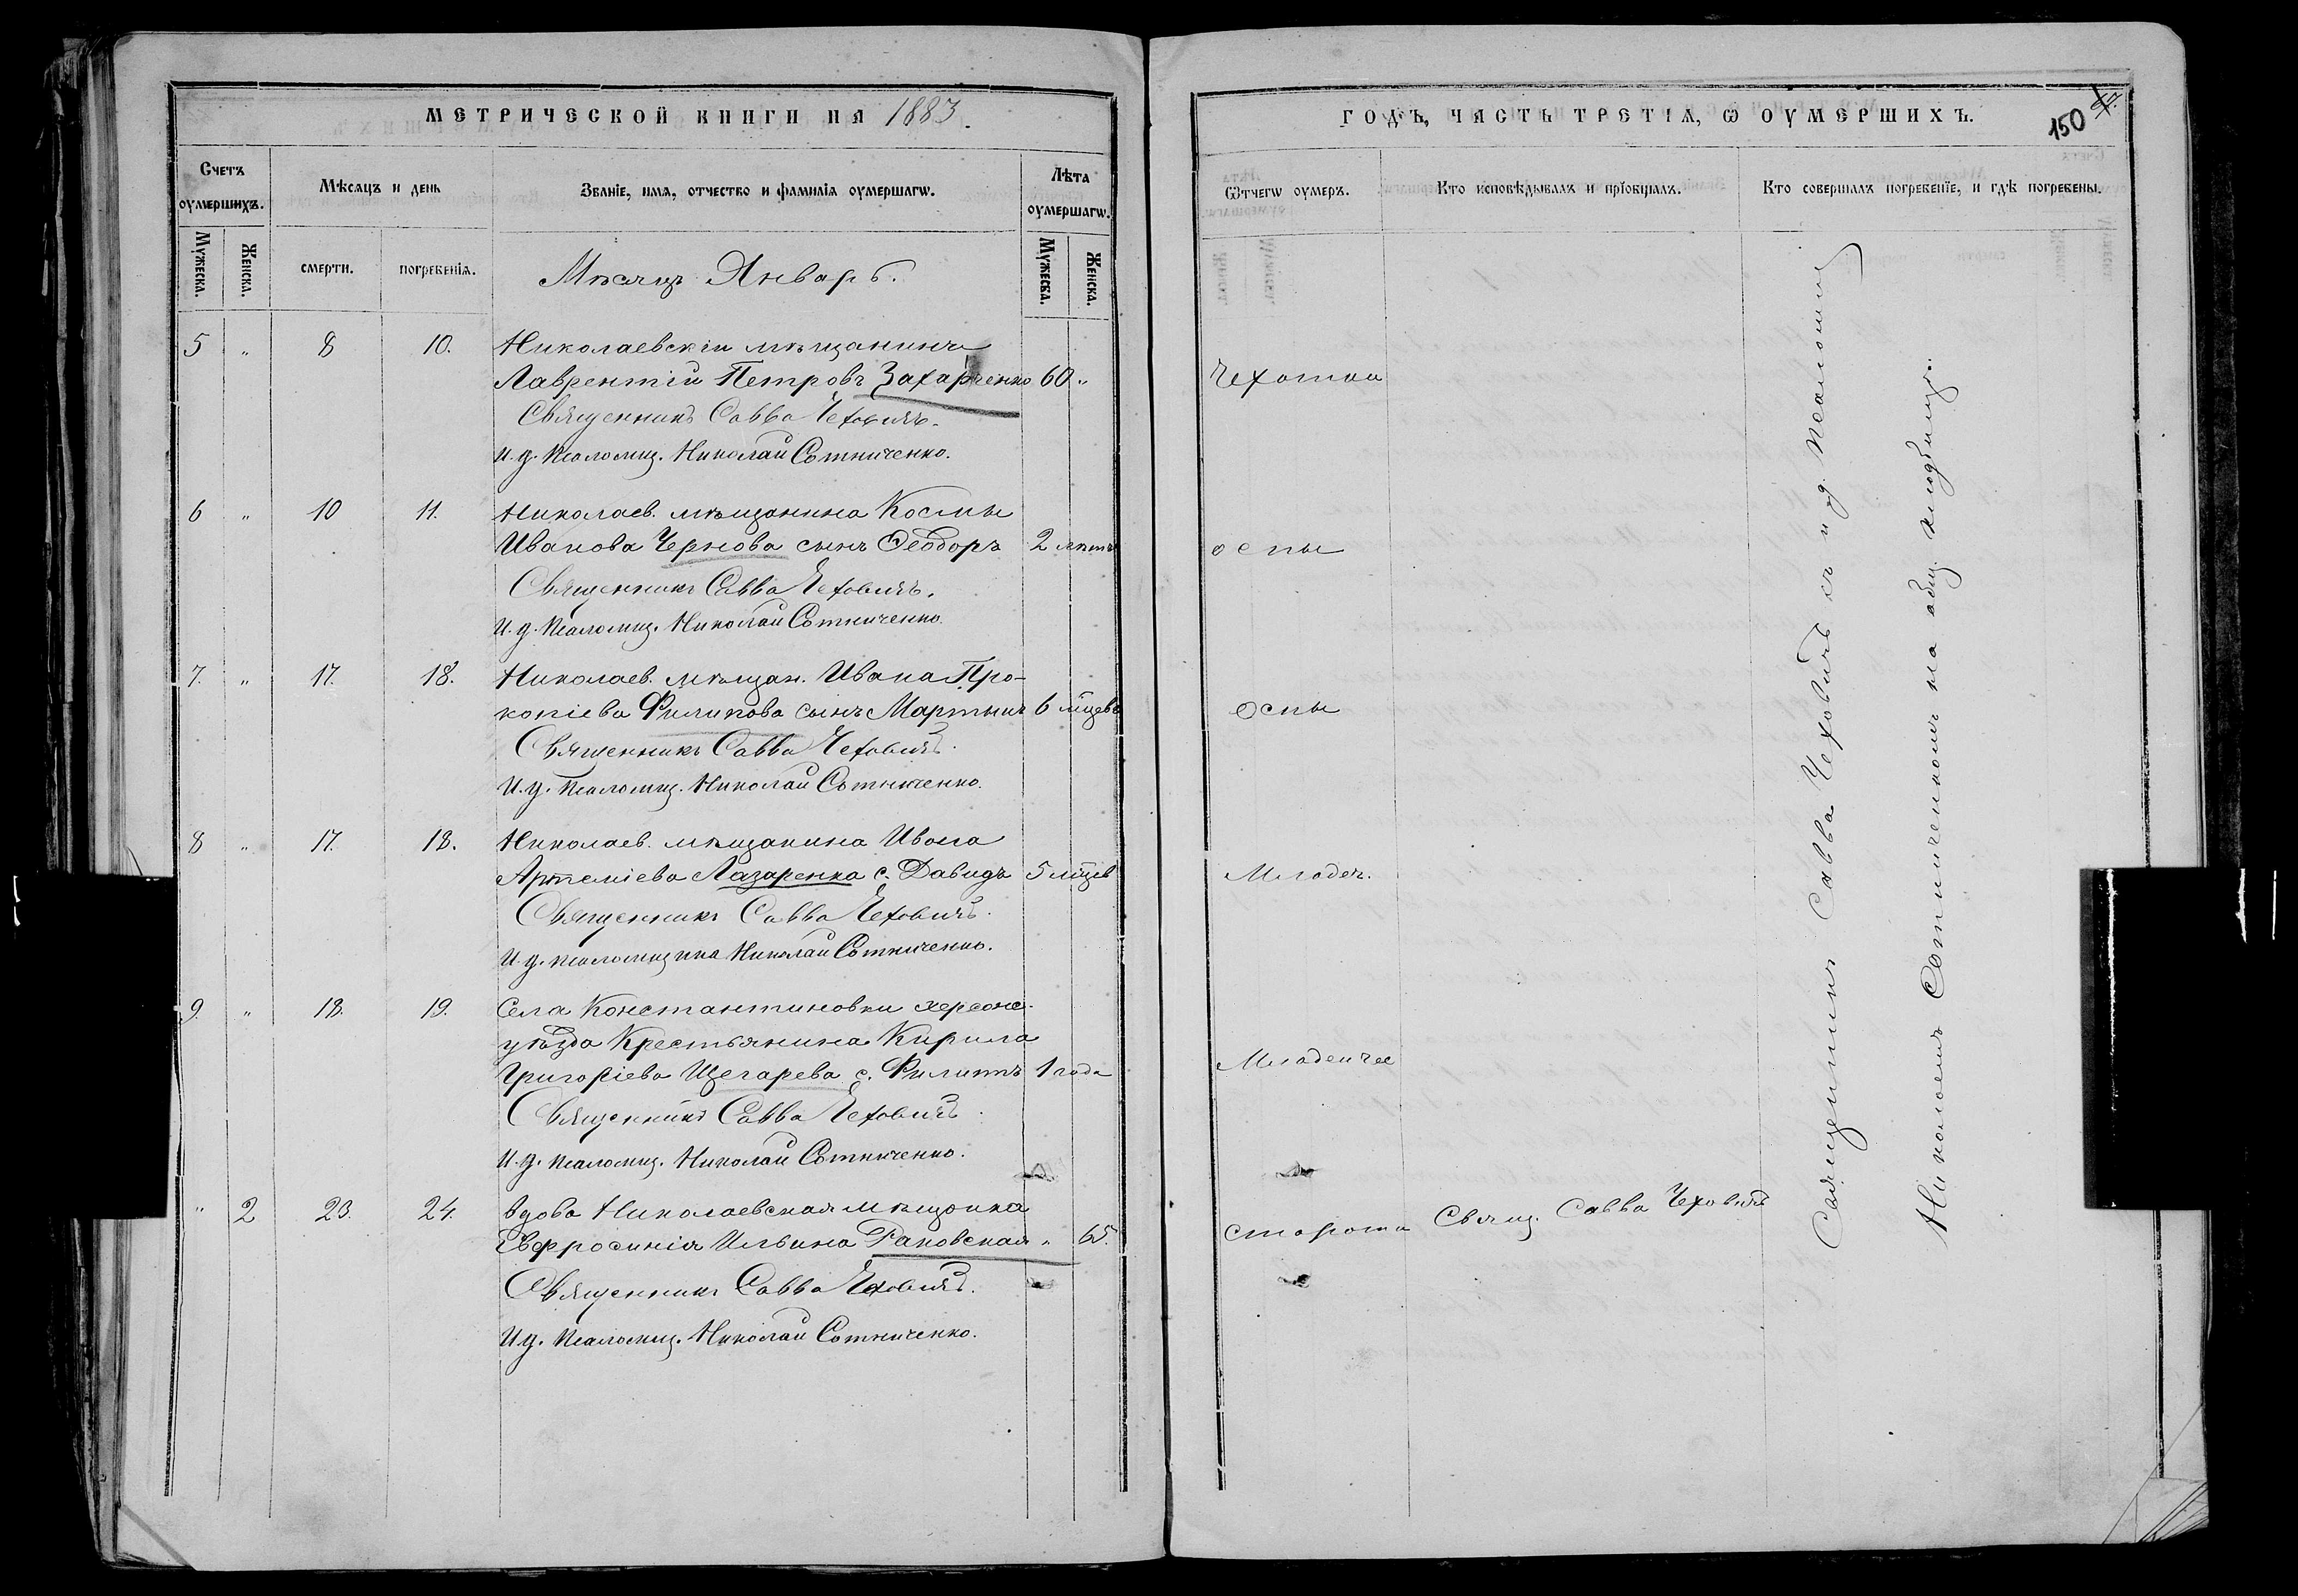 МЕТРИЧЕСКОЙ КНИГИ НА 1883.
Счетъ оумершихъ.
Мѣсяцъ и день
Званіе, имя, отчество и фамилія оумершагѡ.
Лѣта оумершагѡ.
Мужеска.
Женска.
смерти.
погребенія.
Мужеска.
Женска.
Мѣсяцъ Январь.
5 " 8 10. Николаевскій мѣщанинъ
Лаврентій Петровъ Захарченко 60 "
Священникъ Савва Чеховичъ.
И. д. Псаломщ. Николай Сотниченко.
6 " 10 11. Николаев. мѣщанина Космы
Иванова Чернова сынъ Ѳеодоръ 2 лѣтъ
Священникъ Савва Чеховичъ.
И. д. Псаломщ. Николай Сотниченко.
7. " 17. 18. Николаев. мѣщан. Ивана Про-
копіева Филипова сынъ Мартынъ 6 мцевъ
Священникъ Савва Чеховичъ.
И. д. Псаломщ. Николай Сотниченко.
8 " 17. 18. Николаев. мѣщанина Ивана
Артеміева Лазаренка с. Давидъ 5 мцев
Священникъ Савва Чеховичъ.
И. д. псаломщика Николай Сотниченко.
9. " 18. 19. Села Константиновки херсонс.
уѣзда Крестьянина Кирила
Григоріева Щегарева с. Филиппъ 1 года
Священникъ Савва Чеховичъ.
И. д. Псаломщ. Николай Сотниченко.
" 2 23. 24. Вдова Николаевская мѣщанка
Евфросинія Ильина Раковская " 65.
Священникъ Савва Чеховичъ.
И. д. Псаломщ. Николай Сотниченко.
ГОДЪ, ЧАСТЬ ТРЕТІѦ, Ѡ ОУМЕРШИХЪ.
150
Ѿчегѡ оумеръ.
Кто исповѣдывалъ и прїобщалъ.
Кто совершалъ погребенїе, и гдѣ погребены.
Чехотки
оспы
Оспы
Младен.
Младенчес
старости Свящ. Савва Чеховичъ
Священникъ Савва Чеховичъ съ и. д. Псаломщ.
Николаемъ Сотниченкомъ на общ. кладбищѣ.